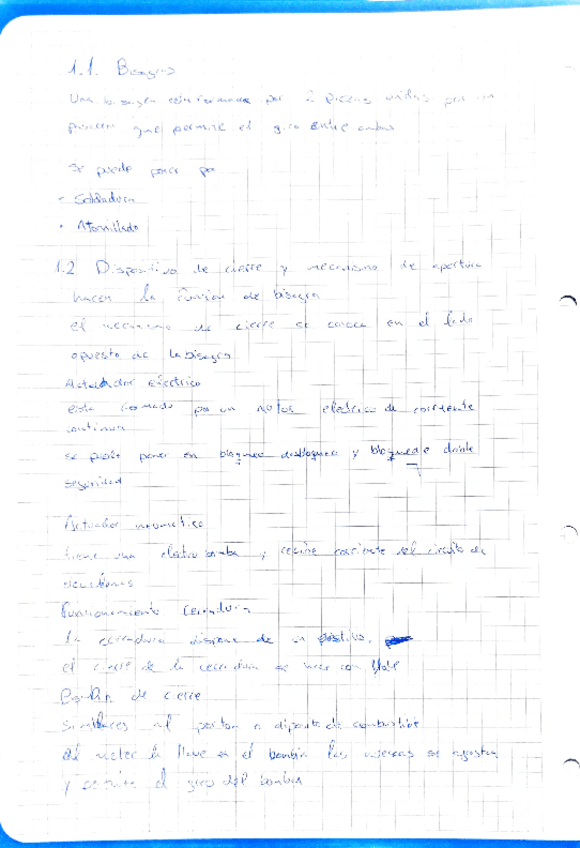 1.1. Bisagras
Una bisagra está formada por 2 piezas unidas por un
que permite el giro entre ambas
Se puede poner por
- Soldadura
• Atornillado
1.2 Dispositivo de cierre y mecanismo de apertura
hacen la función de bisagra
el mecanismo de cierre se coloca en el lado
opuesto de la bisagra
Actuador eléctrico
esta formado por un motor electrico de corriente
continua
se puede poner en bloqueo desbloqueo y bloqueo doble
seguridad
Actuador neumatico
tiene una electrobomba y recibe corriente del circuito de
Funcionamiento Cerradura
La cerradura dispone de un
el cierre de la cerradura se hace con llave
Bombin de cierre
Similares al porton o diposito de combustible
Al meter la llave en el bombin las se
y el giro del bombin